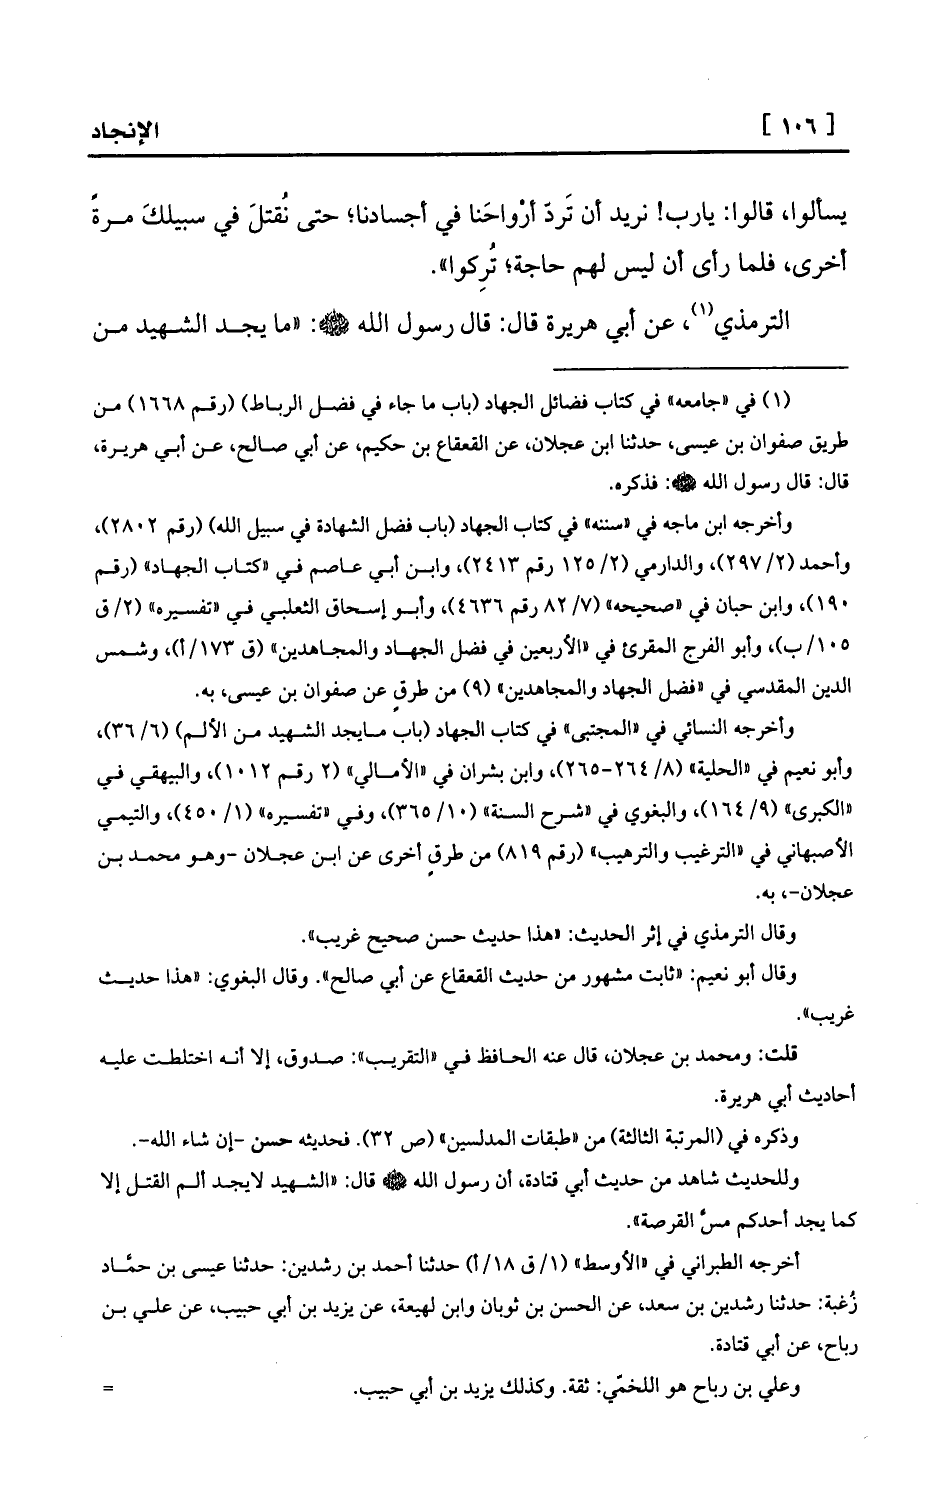 [ ١٠٦ ] الإنجاد
يسألوا، قالوا: يارب! نريد أن تَردّ أرْواحَنا في أجسادنا؛ حتى نُقتلَ في سبيلكَ مرةً
أخرى، فلما رأى أن ليس لهم حاجة؛ تُرِكوا».
الترمذي(١)، عن أبي هريرة قال: قال رسول الله ﷺ: «ما يجد الشهيد من
(١) في «جامعه» في كتاب فضائل الجهاد (باب ما جاء في فضل الرباط) (رقم ١٦٦٨) من
طريق صفوان بن عيسى، حدثنا ابن عجلان، عن القعقاع بن حكيم، عن أبي صالح، عن أبي هريرة،
قال: قال رسول الله ﷺ: فذكره.
وأخرجه ابن ماجه في «سننه» في كتاب الجهاد (باب فضل الشهادة في سبيل الله) (رقم ٢٨٠٢)،
وأحمد (٢/ ٢٩٧)، والدارمي (٢/ ١٢٥ رقم ٢٤١٣)، وابن أبي عاصم في «كتاب الجهاد» (رقم
١٩٠)، وابن حبان في «صحيحه» (٧/ ٨٢ رقم ٤٦٣٦)، وأبو إسحاق الثعلبي في «تفسيره» (٢/ ق
١٠٥/ ب)، وأبو الفرج المقرئ في «الأربعين في فضل الجهاد والمجاهدين» (ق ١٧٣/ أ)، وشمس
الدين المقدسي في «فضل الجهاد والمجاهدين» (٩) من طرقٍ عن صفوان بن عيسى، به.
وأخرجه النسائي في «المجتبى» في كتاب الجهاد (باب مايجد الشهيد من الألم) (٦/ ٣٦)،
وأبو نعيم في «الحلية» (٨/ ٢٦٤-٢٦٥)، وابن بشران في «الأمالي» (٢ رقم ١٠١٢)، والبيهقي في
«الكبرى» (٩/ ١٦٤)، والبغوي في «شرح السنة» (١٠/ ٣٦٥)، وفي «تفسيره» (١/ ٤٥٠)، والتيمي
الأصبهاني في «الترغيب والترهيب» (رقم ٨١٩) من طرقٍ أخرى عن ابن عجلان -وهو محمد بن
عجلان-، به.
وقال الترمذي في إثر الحديث: «هذا حديث حسن صحيح غريب».
وقال أبو نعيم: «ثابت مشهور من حديث القعقاع عن أبي صالح». وقال البغوي: «هذا حديث
غريب».
قلت: ومحمد بن عجلان، قال عنه الحافظ في «التقريب»: صدوق، إلا أنه اختلطت عليه
أحاديث أبي هريرة.
وذكره في (المرتبة الثالثة) من «طبقات المدلسين» (ص ٣٢). فحديثه حسن -إن شاء الله-.
وللحديث شاهد من حديث أبي قتادة، أن رسول الله ﷺ قال: «الشهيد لايجد ألم القتل إلا
كما يجد أحدكم مسَّ القرصة».
أخرجه الطبراني في «الأوسط» (١/ ق ١٨/ أ) حدثنا أحمد بن رشدين: حدثنا عيسى بن حمَّاد
زُغبة: حدثنا رشدين بن سعد، عن الحسن بن ثوبان وابن لهيعة، عن يزيد بن أبي حبيب، عن علي بن
رباح، عن أبي قتادة.
وعلي بن رباح هو اللخمّي: ثقة. وكذلك يزيد بن أبي حبيب. =